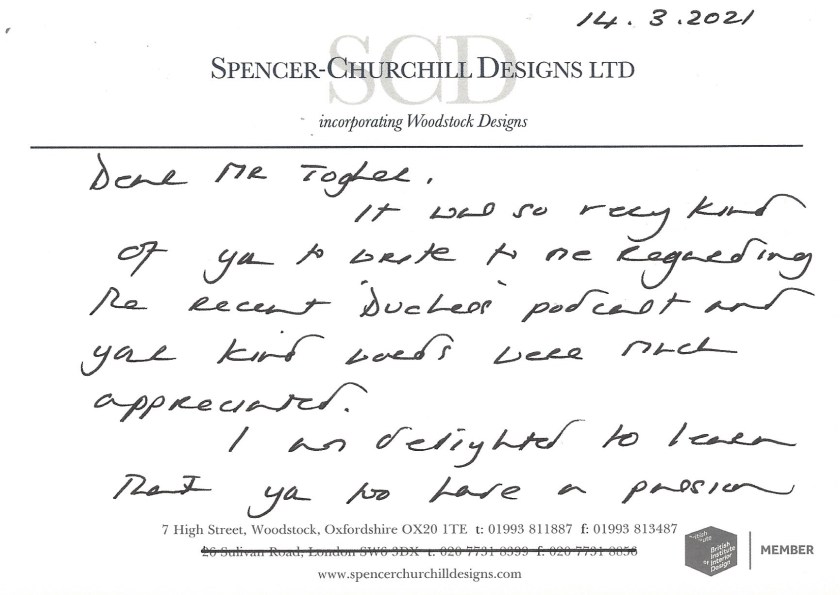 14.3.2021
SCD
SPENCER-CHURCHILL DESIGNS LTD
incorporating Woodstock Designs
Dear Mr Toghee.
It was so very kind
of you to write to me regarding
the recent 'Duchess' podcast and
your kind words were much
appreciated.
I am delighted to learn
that you too have a passion
7 High Street, Woodstock, Oxfordshire OX20 1TE t: 01993 811887 f: 01993 813487
26 Sulivan Road, London SW6 3DX t: 020 7731 8399 f: 020 7731 8856
www.spencerchurchilldesigns.com
British
Institute
of Interior
Design
MEMBER